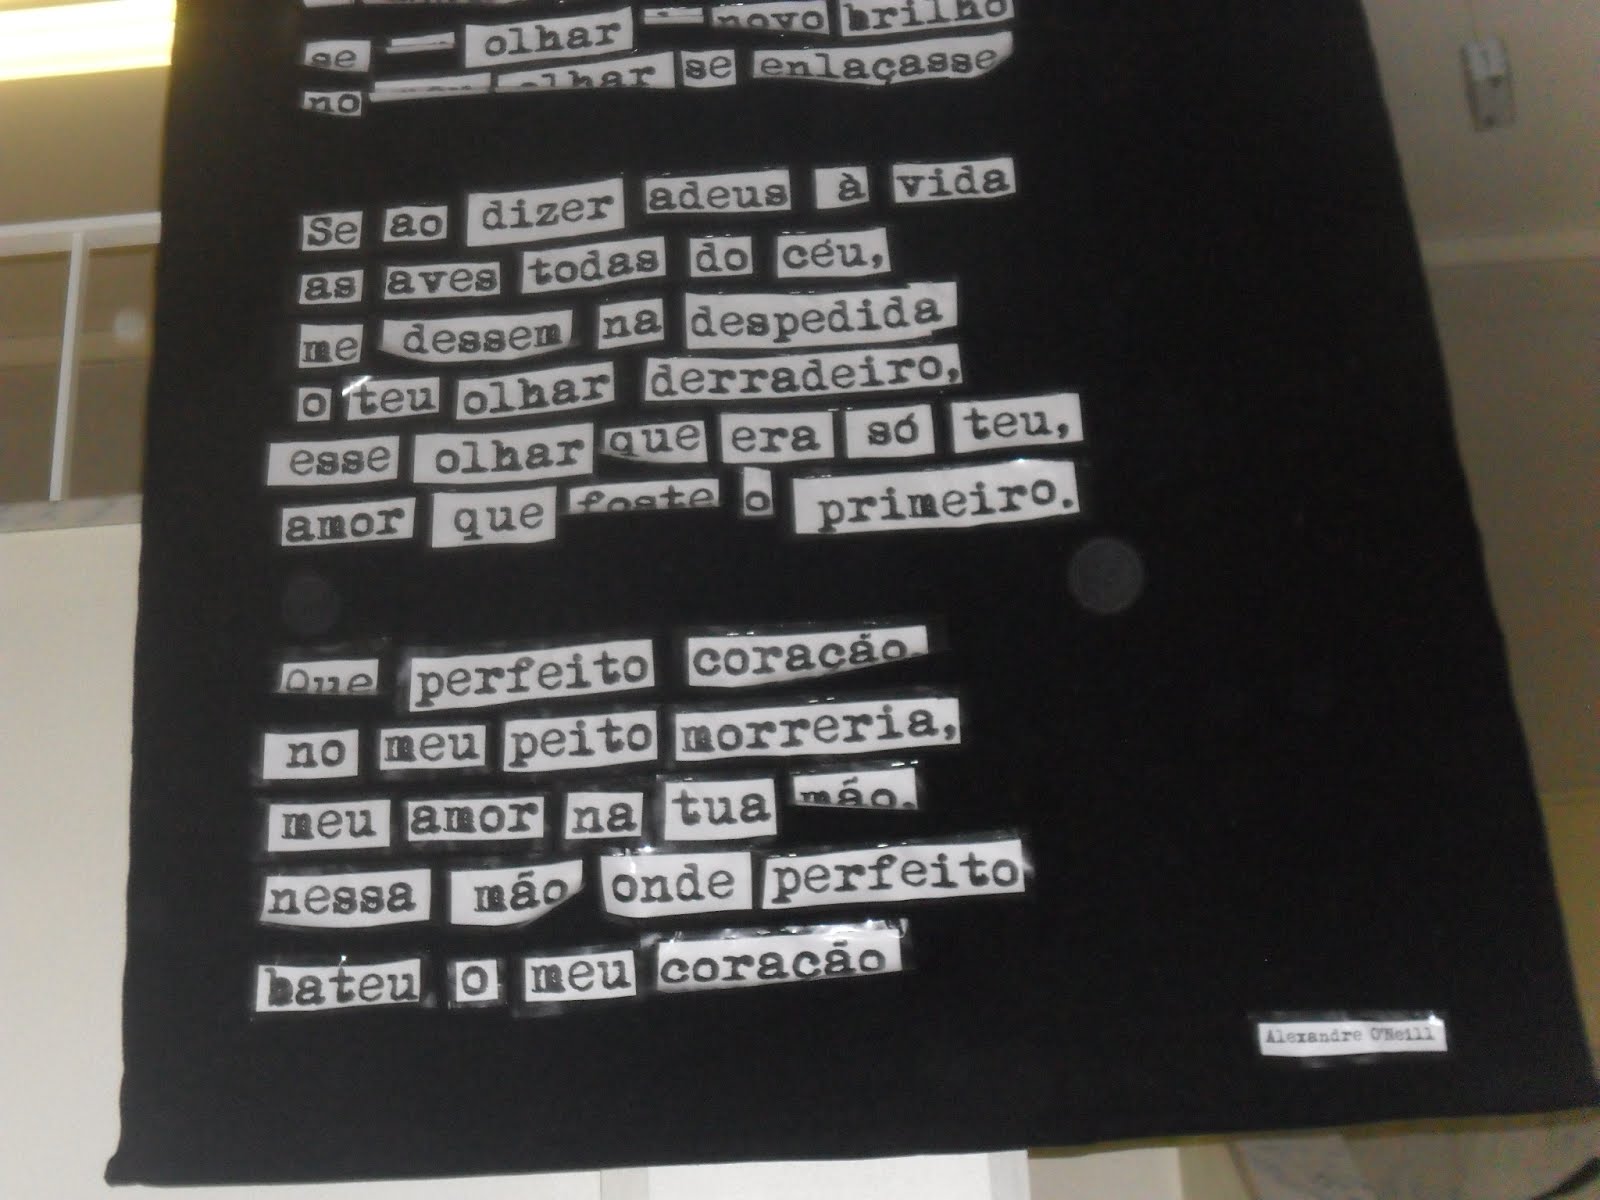 se olhar novo brilho
no olhar se enlaçasse
Se ao dizer adeus à vida
as aves todas do céu,
me dessem na despedida
o teu olhar derradeiro,
esse olhar que era só teu,
amor que foste o primeiro.
Que perfeito coração
no meu peito morreria,
meu amor na tua mão,
nessa mão onde perfeito
bateu o meu coração
Alexandre O'Neill